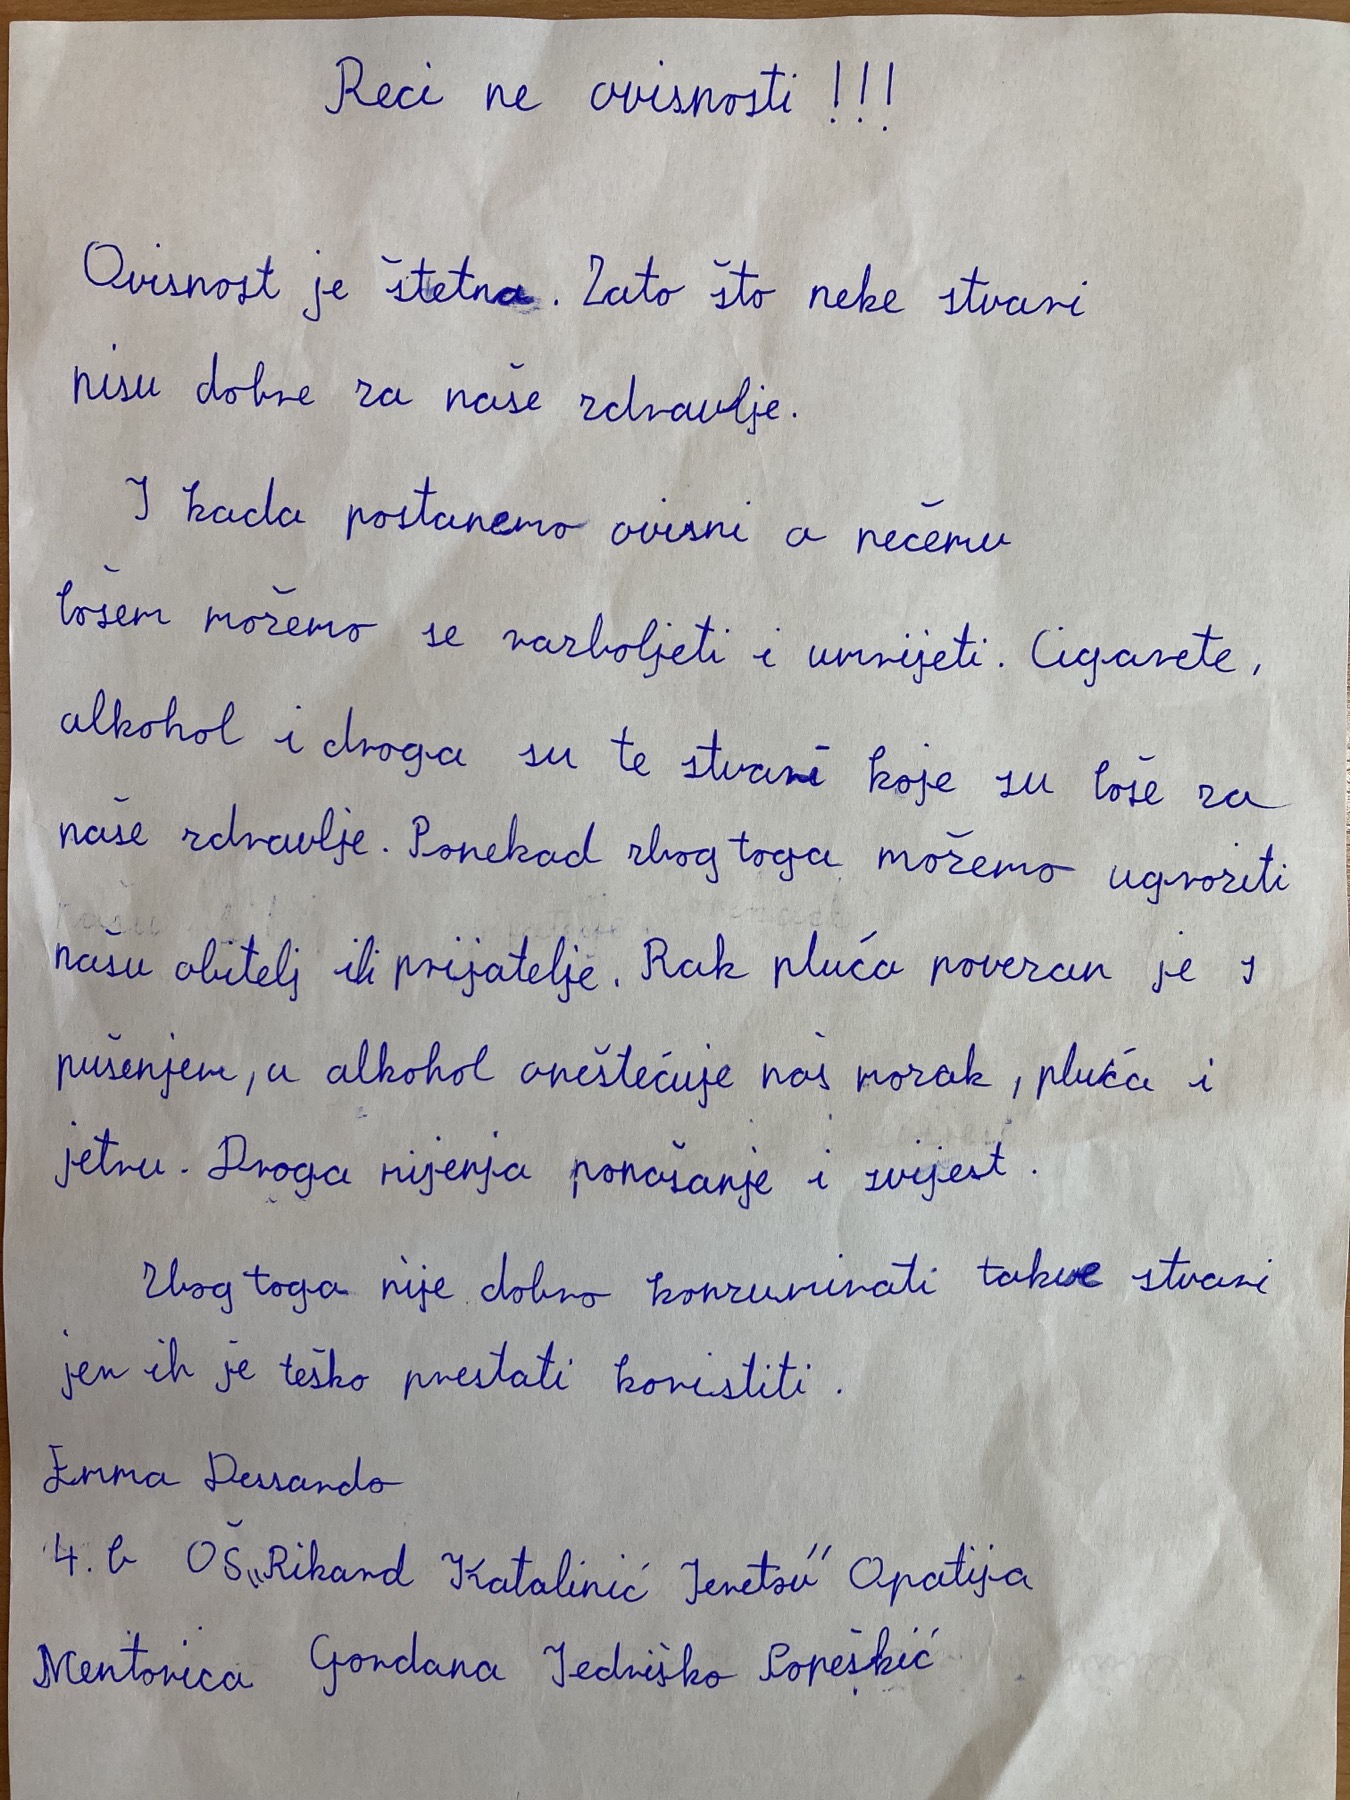 Reci ne ovisnosti !!!
Ovisnost je štetna. Zato što neke stvari
nisu dobre za naše zdravlje.
I kada postanemo ovisni o nečemu
lošem možemo se razboljeti i umrijeti. Cigarete,
alkohol i droga su te stvari koje su loše za
naše zdravlje. Ponekad zbog toga možemo ugroziti
našu obitelj ili prijatelje. Rak pluća povezan je s
pušenjem, a alkohol oneštećuje naš mozak, pluća i
jetru. Droga mijenja ponašanje i svijest.
Zbog toga nije dobro konzumirati takve stvari
jer ih je teško prestati koristiti.
Emma Dessardo
4. b OŠ „Rikard Katalinić Jeretov" Opatija
Mentorica Gordana Jedriško Popeškić